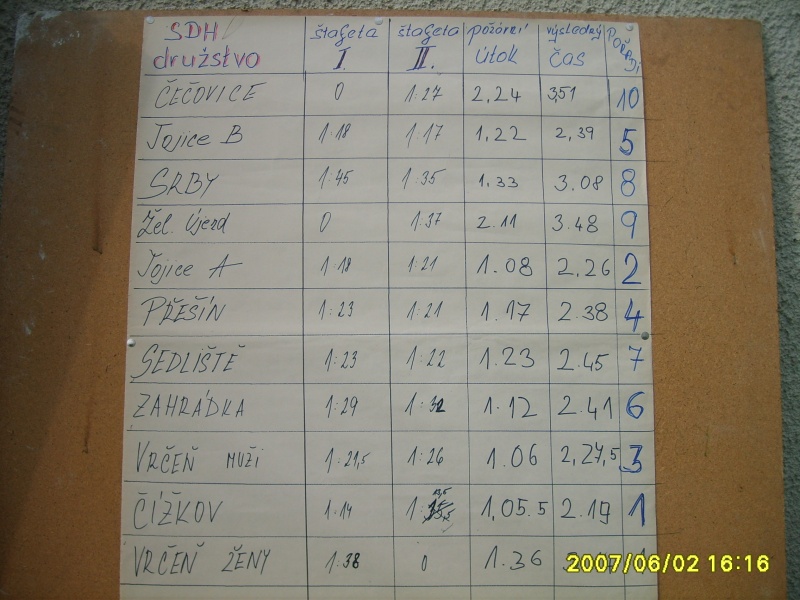 SDH družstvo štafeta I. štafeta II. požární útok výsledný čas POŘADÍ
ČEČOVICE 0 1:27 2,24 3,51 10
Jojice B 1:18 1:17 1,22 2,39 5
SRBY 1:45 1:35 1.33 3.08 8
Žel. Újezd 0 1:37 2.11 3.48 9
Jojice A 1:18 1:21 1.08 2,26 2
PŘEŠÍN 1:23 1:21 1.17 2.38 4
SEDLIŠTĚ 1:23 1:22 1.23 2.45 7
ZAHRÁDKA 1:29 1:32 1.12 2.41 6
VRČEŇ MUŽI 1:21,5 1:26 1.06 2,27,5 3
ČÍŽKOV 1:14 1: 13,5 1,05.5 2.19 1
VRČEŇ ŽENY 1:38 0 1.36
2007/06/02 16:16